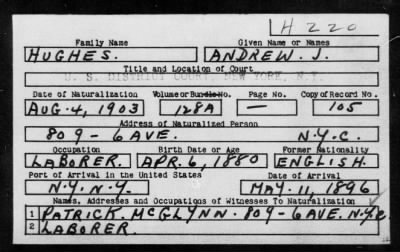 H 220
Family Name Given Name or Names
HUGHES. ANDREW. J.
Title and Location of Court
U. S. DISTRICT COURT, NEW YORK, N.Y.
Date of Naturalization Volume or Bundle No. Page No. Copy of Record No.
AUG. 4, 1903 128A — 105
Address of Naturalized Person
809 - 6 AVE. N.Y.C.
Occupation Birth Date or Age Former Nationality
LABORER. APR. 6, 1880 ENGLISH.
Port of Arrival in the United States Date of Arrival
N.Y. N.Y. MAY. 11, 1896
Names, Addresses and Occupations of Witnesses To Naturalization
1 PATRICK. MCGLYNN. 809 - 6 AVE. N.Y.C.
2 LABORER.